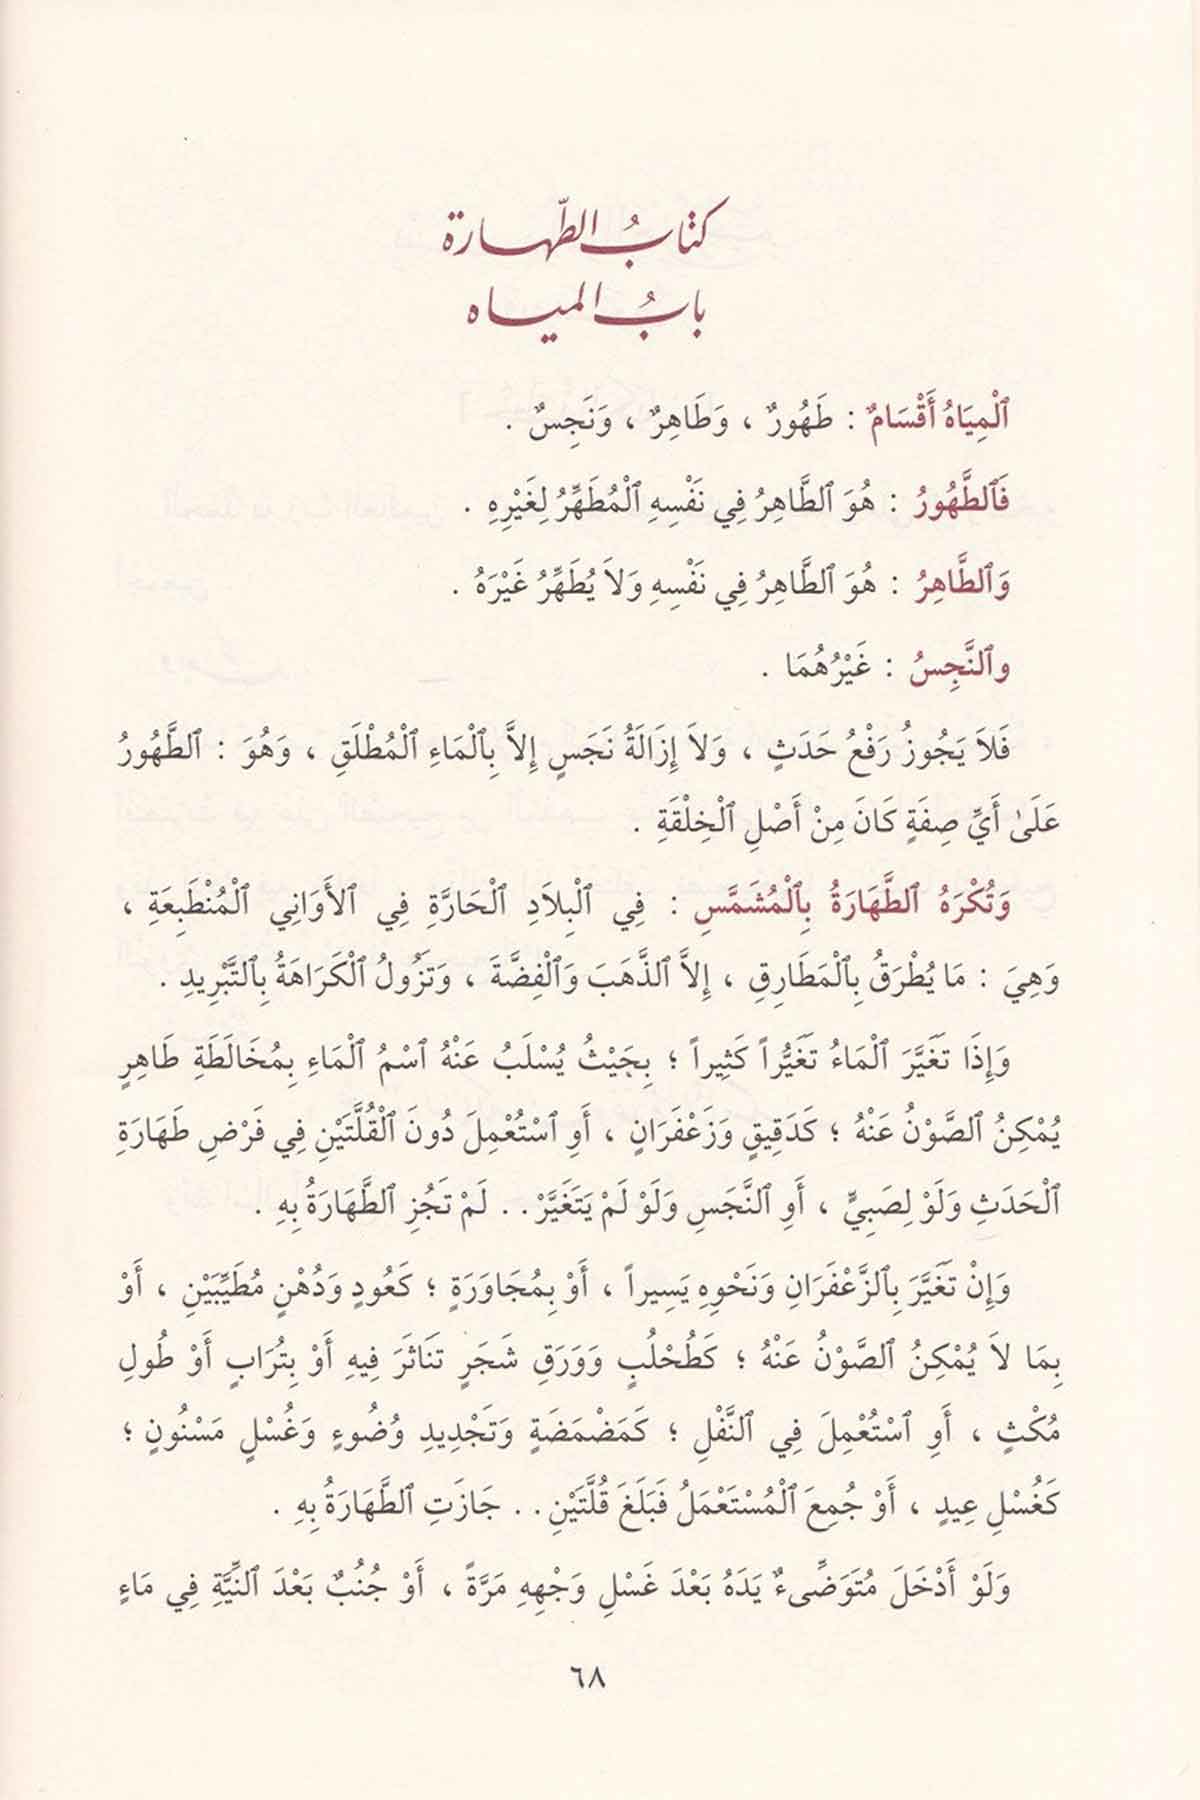 كتابُ الطّهارة
بابُ المياه
ٱلْمِيَاهُ أَقْسَامٌ : طَهُورٌ ، وَطَاهِرٌ ، وَنَجِسٌ .
فَٱلطَّهُورُ : هُوَ ٱلطَّاهِرُ فِي نَفْسِهِ ٱلْمُطَهِّرُ لِغَيْرِهِ .
وَٱلطَّاهِرُ : هُوَ ٱلطَّاهِرُ فِي نَفْسِهِ وَلاَ يُطَهِّرُ غَيْرَهُ .
وٱلنَّجِسُ : غَيْرُهُمَا .
فَلاَ يَجُوزُ رَفْعُ حَدَثٍ ، وَلاَ إِزَالَةُ نَجَسٍ إِلاَّ بِٱلْمَاءِ ٱلْمُطْلَقِ ، وَهُوَ : ٱلطَّهُورُ
عَلَىٰ أَيِّ صِفَةٍ كَانَ مِنْ أَصْلِ ٱلْخِلْقَةِ .
وَتُكْرَهُ ٱلطَّهَارَةُ بِٱلْمُشَمَّسِ : فِي ٱلْبِلاَدِ ٱلْحَارَّةِ فِي ٱلأَوَانِي ٱلْمُنْطَبِعَةِ ،
وَهِيَ : مَا يُطْرَقُ بِٱلْمَطَارِقِ ، إِلاَّ ٱلذَّهَبَ وَٱلْفِضَّةَ ، وَتَزُولُ ٱلْكَرَاهَةُ بِٱلتَّبْرِيدِ .
وَإِذَا تَغَيَّرَ ٱلْمَاءُ تَغَيُّراً كَثِيراً ؛ بِحَيْثُ يُسْلَبُ عَنْهُ ٱسْمُ ٱلْمَاءِ بِمُخَالَطَةِ طَاهِرٍ
يُمْكِنُ ٱلصَّوْنُ عَنْهُ ؛ كَدَقِيقٍ وَزَعْفَرَانٍ ، أَوِ ٱسْتُعْمِلَ دُونَ ٱلْقُلَّتَيْنِ فِي فَرْضِ طَهَارَةِ
ٱلْحَدَثِ وَلَوْ لِصَبِيٍّ ، أَوِ ٱلنَّجَسِ وَلَوْ لَمْ يَتَغَيَّرْ . . لَمْ تَجُزِ ٱلطَّهَارَةُ بِهِ .
وَإِنْ تَغَيَّرَ بِٱلزَّعْفَرَانِ وَنَحْوِهِ يَسِيراً ، أَوْ بِمُجَاوَرَةٍ ؛ كَعُودٍ وَدُهْنٍ مُطَيِّبَيْنِ ، أَوْ
بِمَا لاَ يُمْكِنُ ٱلصَّوْنُ عَنْهُ ؛ كَطُحْلُبٍ وَوَرَقِ شَجَرٍ تَنَاثَرَ فِيهِ أَوْ بِتُرَابٍ أَوْ طُولِ
مُكْثٍ ، أَوِ ٱسْتُعْمِلَ فِي ٱلنَّفْلِ ؛ كَمَضْمَضَةٍ وَتَجْدِيدِ وُضُوءٍ وَغُسْلٍ مَسْنُونٍ ؛
كَغُسْلِ عِيدٍ ، أَوْ جُمِعَ ٱلْمُسْتَعْمَلُ فَبَلَغَ قُلَّتَيْنِ . . جَازَتِ ٱلطَّهَارَةُ بِهِ .
وَلَوْ أَدْخَلَ مُتَوَضِّىءٌ يَدَهُ بَعْدَ غَسْلِ وَجْهِهِ مَرَّةً ، أَوْ جُنُبٌ بَعْدَ ٱلنِّيَّةِ فِي مَاءٍ
٦٨